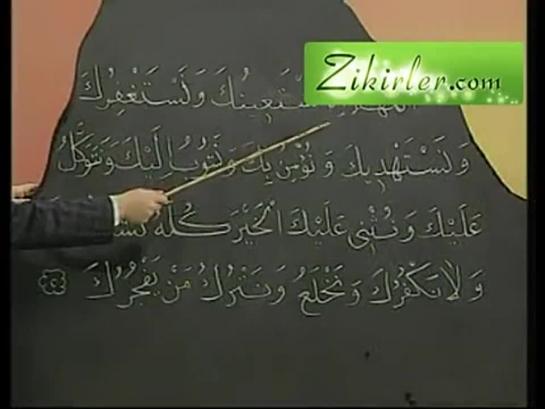 Zikirler.com
وَنَسْتَغْفِرُكَ
وَنَسْتَهْدِيكَ وَنُؤْمِنُ بِكَ وَنَتُوبُ اِلَيْكَ وَنَتَوَكَّلُ
عَلَيْكَ وَنُثْنِى عَلَيْكَ الْخَيْرَ كُلَّهُ
وَلَا نَكْفُرُكَ وَنَخْلَعُ وَنَتْرُكُ مَنْ يَفْجُرُكَ